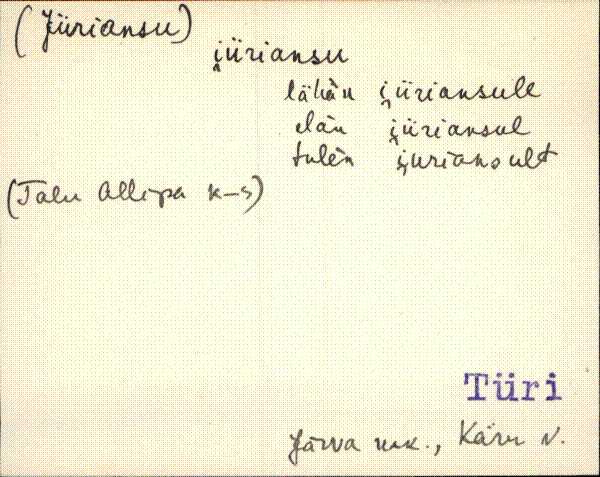 (Jüriansu)
i̯üriansu
lähän i̯üriansule
elän i̯üriansul
tulen i̯üriansult
(Talu Allepa k-s)
Türi
Järva mk., Käru v.